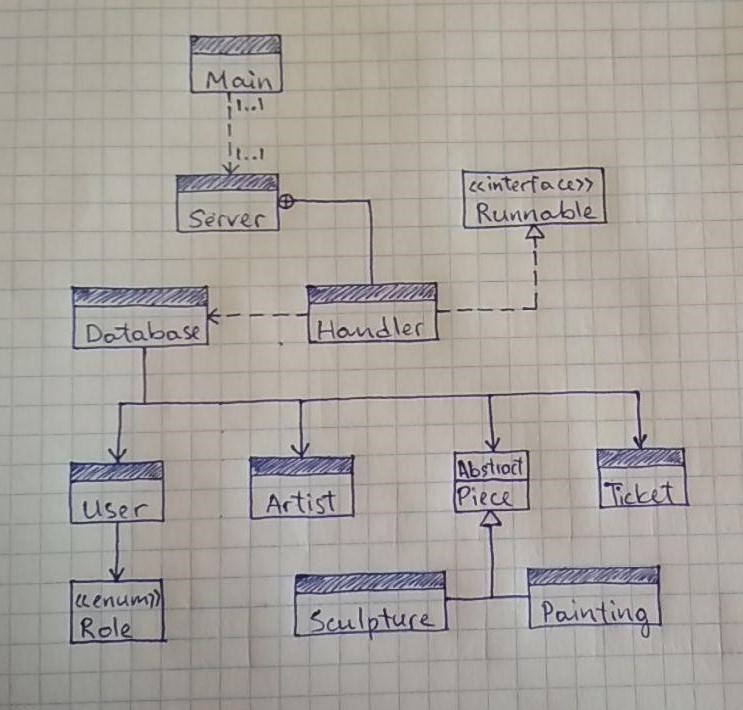 Main
1..1
1..1
Server
<<interface>>
Runnable
Database
Handler
User
Artist
Abstract
Piece
Ticket
<<enum>>
Role
Sculpture
Painting